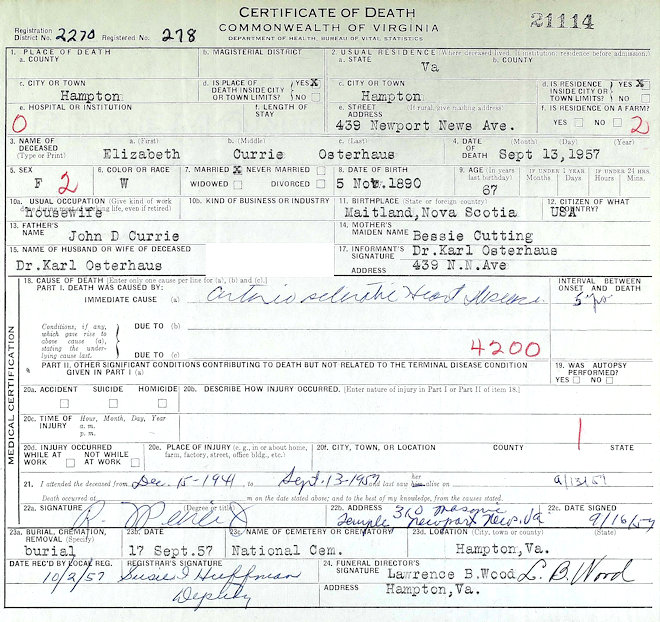 CERTIFICATE OF DEATH
COMMONWEALTH OF VIRGINIA
DEPARTMENT OF HEALTH, BUREAU OF VITAL STATISTICS
21114
Registration District No. 2270 Registered No. 278
1. PLACE OF DEATH
a. COUNTY
b. MAGISTERIAL DISTRICT
2. USUAL RESIDENCE (Where deceased lived. If institution: residence before admission)
a. STATE Va b. COUNTY
c. CITY OR TOWN Hampton
d. IS PLACE OF DEATH INSIDE CITY OR TOWN LIMITS? YES X NO
c. CITY OR TOWN Hampton
d. IS RESIDENCE INSIDE CITY OR TOWN LIMITS? YES X NO
e. HOSPITAL OR INSTITUTION 0
f. LENGTH OF STAY
e. STREET ADDRESS (If rural, give mailing address) 439 Newport News Ave.
f. IS RESIDENCE ON A FARM? YES NO 2
3. NAME OF DECEASED (Type or Print) a. (First) b. (Middle) c. (Last)
Elizabeth Currie Osterhaus
4. DATE OF DEATH (Month) (Day) (Year) Sept 13,1957
5. SEX F 2
6. COLOR OR RACE W
7. MARRIED X NEVER MARRIED
WIDOWED DIVORCED
8. DATE OF BIRTH 5 Nov.1890
9. AGE (In years last birthday) 67
IF UNDER 1 YEAR Months Days
IF UNDER 24 HRS. Hours Min.
10a. USUAL OCCUPATION (Give kind of work done during most of working life, even if retired) housewife
10b. KIND OF BUSINESS OR INDUSTRY
11. BIRTHPLACE (State or foreign country) Maitland,Nova Scotia
12. CITIZEN OF WHAT COUNTRY? USA
13. FATHER'S NAME John D Currie
14. MOTHER'S MAIDEN NAME Bessie Cutting
15. NAME OF HUSBAND OR WIFE OF DECEASED Dr.Karl Osterhaus
17. INFORMANT'S SIGNATURE Dr.Karl Osterhaus
ADDRESS 439 N.N.Ave
MEDICAL CERTIFICATION
18. CAUSE OF DEATH [Enter only one cause per line for (a), (b) and (c).]
PART I. DEATH WAS CAUSED BY:
IMMEDIATE CAUSE (a) Arteriosclerotic Heart Disease
INTERVAL BETWEEN ONSET AND DEATH 5 yrs
Conditions, if any, which gave rise to above cause (a), stating the underlying cause last.
DUE TO (b)
DUE TO (c)
4200
PART II. OTHER SIGNIFICANT CONDITIONS CONTRIBUTING TO DEATH BUT NOT RELATED TO THE TERMINAL DISEASE CONDITION GIVEN IN PART I (a)
19. WAS AUTOPSY PERFORMED? YES NO
20a. ACCIDENT SUICIDE HOMICIDE
20b. DESCRIBE HOW INJURY OCCURRED. [Enter nature of injury in Part I or Part II of item 18.]
20c. TIME OF INJURY Hour, Month, Day, Year
a. m.
p. m.
20d. INJURY OCCURRED
WHILE AT WORK NOT WHILE AT WORK
20e. PLACE OF INJURY (e. g., in or about home, farm, factory, street, office bldg., etc.)
20f. CITY, TOWN, OR LOCATION COUNTY STATE
1
21. I attended the deceased from Dec. 15-1941 to Sept. 13-1957 and last saw her alive on 9/13/57
Death occurred at m on the date stated above; and to the best of my knowledge, from the causes stated.
22a. SIGNATURE (Degree or title)
22b. ADDRESS 310 Masonic Temple Newport News, Va
22c. DATE SIGNED 9/16/57
23a. BURIAL, CREMATION, REMOVAL (Specify) burial
23b. DATE 17 Sept.57
23c. NAME OF CEMETERY OR CREMATORY National Cem.
23d. LOCATION (City, town or county) (State) Hampton,Va.
DATE REC'D BY LOCAL REG. 10/2/57
REGISTRAR'S SIGNATURE Susie I Huffman
Deputy
24. FUNERAL DIRECTOR'S SIGNATURE Lawrence B.Wood L. B. Wood
ADDRESS Hampton,Va.